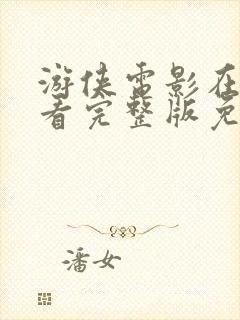 游侠电影在
看完整版免
潘女